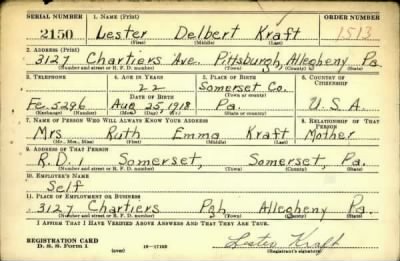 SERIAL NUMBER 1. NAME (Print) ORDER NUMBER
2150 Lester Delbert Kraft 1513
(First) (Middle) (Last)
2. ADDRESS (Print)
3127 Chartiers Ave. Pittsburgh, Allegheny Pa.
(Number and street or R. F. D. number) (Town) (County) (State)
3. TELEPHONE 4. AGE IN YEARS 5. PLACE OF BIRTH 6. COUNTRY OF CITIZENSHIP
22 Somerset Co.
DATE OF BIRTH (Town or county)
Fe. 5296 Aug 25, 1918 Pa. U.S.A.
(Exchange) (Number) (Mo.) (Day) (Yr.) (State or country)
7. NAME OF PERSON WHO WILL ALWAYS KNOW YOUR ADDRESS 8. RELATIONSHIP OF THAT PERSON
Mrs Ruth Emma Kraft Mother
(Mr., Mrs., Miss) (First) (Middle) (Last)
9. ADDRESS OF THAT PERSON
R.D. 1 Somerset, Somerset, Pa.
(Number and street or R. F. D. number) (Town) (County) (State)
10. EMPLOYER'S NAME
Self
11. PLACE OF EMPLOYMENT OR BUSINESS
3127 Chartiers Pgh, Allegheny Pa.
(Number and street or R. F. D. number) (Town) (County) (State)
I AFFIRM THAT I HAVE VERIFIED ABOVE ANSWERS AND THAT THEY ARE TRUE.
REGISTRATION CARD
D. S. S. Form 1 (over) 16-17105 Lester Kraft
(Registrant's signature)